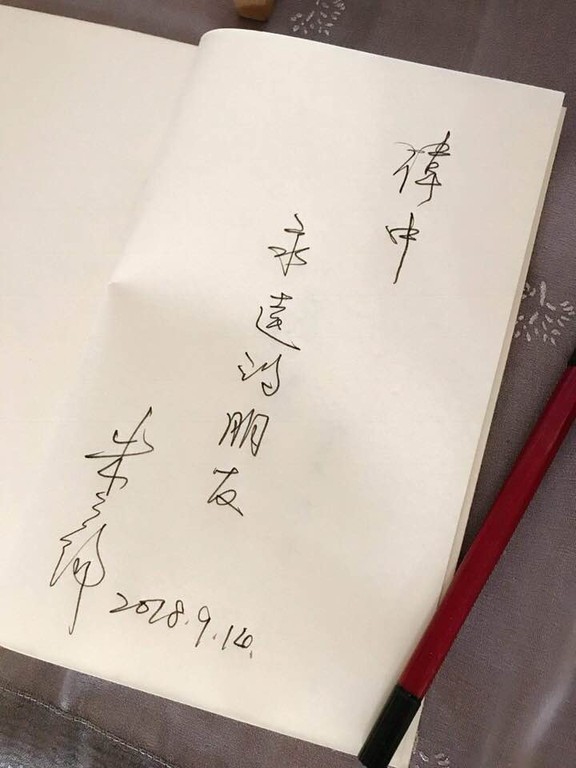 中
永遠的朋友
朱
2018.9.14.